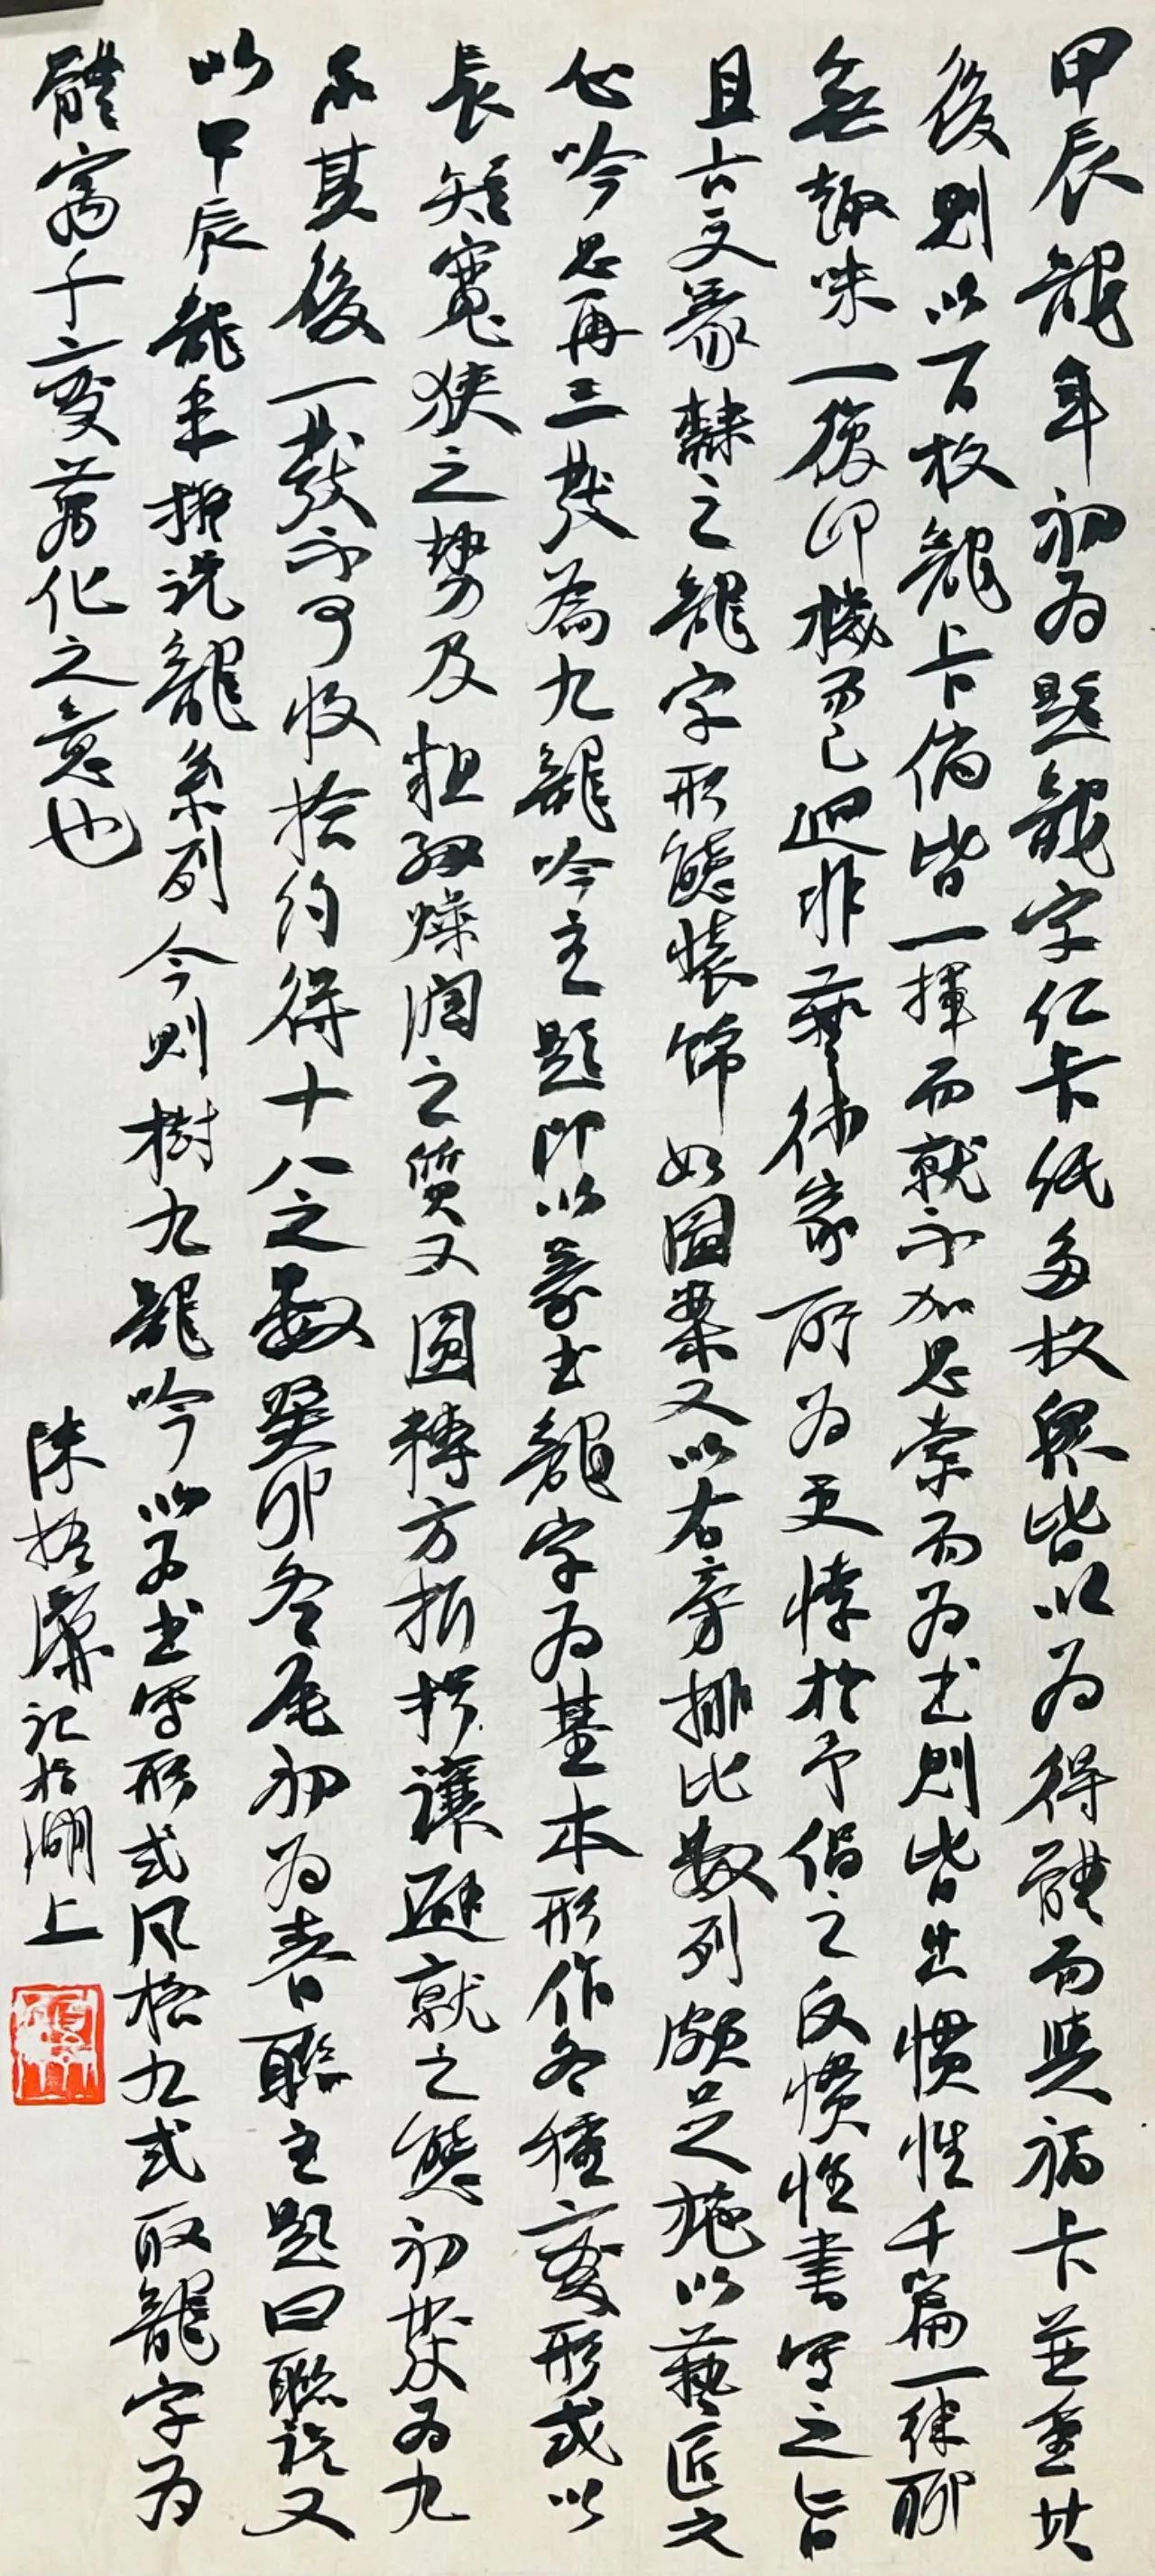 甲辰龍年初為題龍字紅卡紙多枚眾皆以為得體而與福卡並重其
後則以百枚龍卡倘皆一揮而就不加思索而為之則皆出慣性千篇一律聊
無趣味一復印機而已迥非藝術家所為更悖於予倡之反慣性書寫之旨
且古文篆隸之龍字形態裝飾如圖案又以右旁排比數列頗足施以藝匠之
心吟思再三發為九龍吟主題即以篆書龍字為基本形作各種變形或以
長短寬狹之勢及粗細燥潤之質又圓轉方折揖讓避就之態初發為九
不其後一發不可收拾約得十八之數癸卯冬尾初為春聯主題曰聯說又
以甲辰龍年擬說龍系列今則樹九龍吟以為書寫形式風格九式取龍字為
體寓千變萬化之意也
陳振濂記於湖上